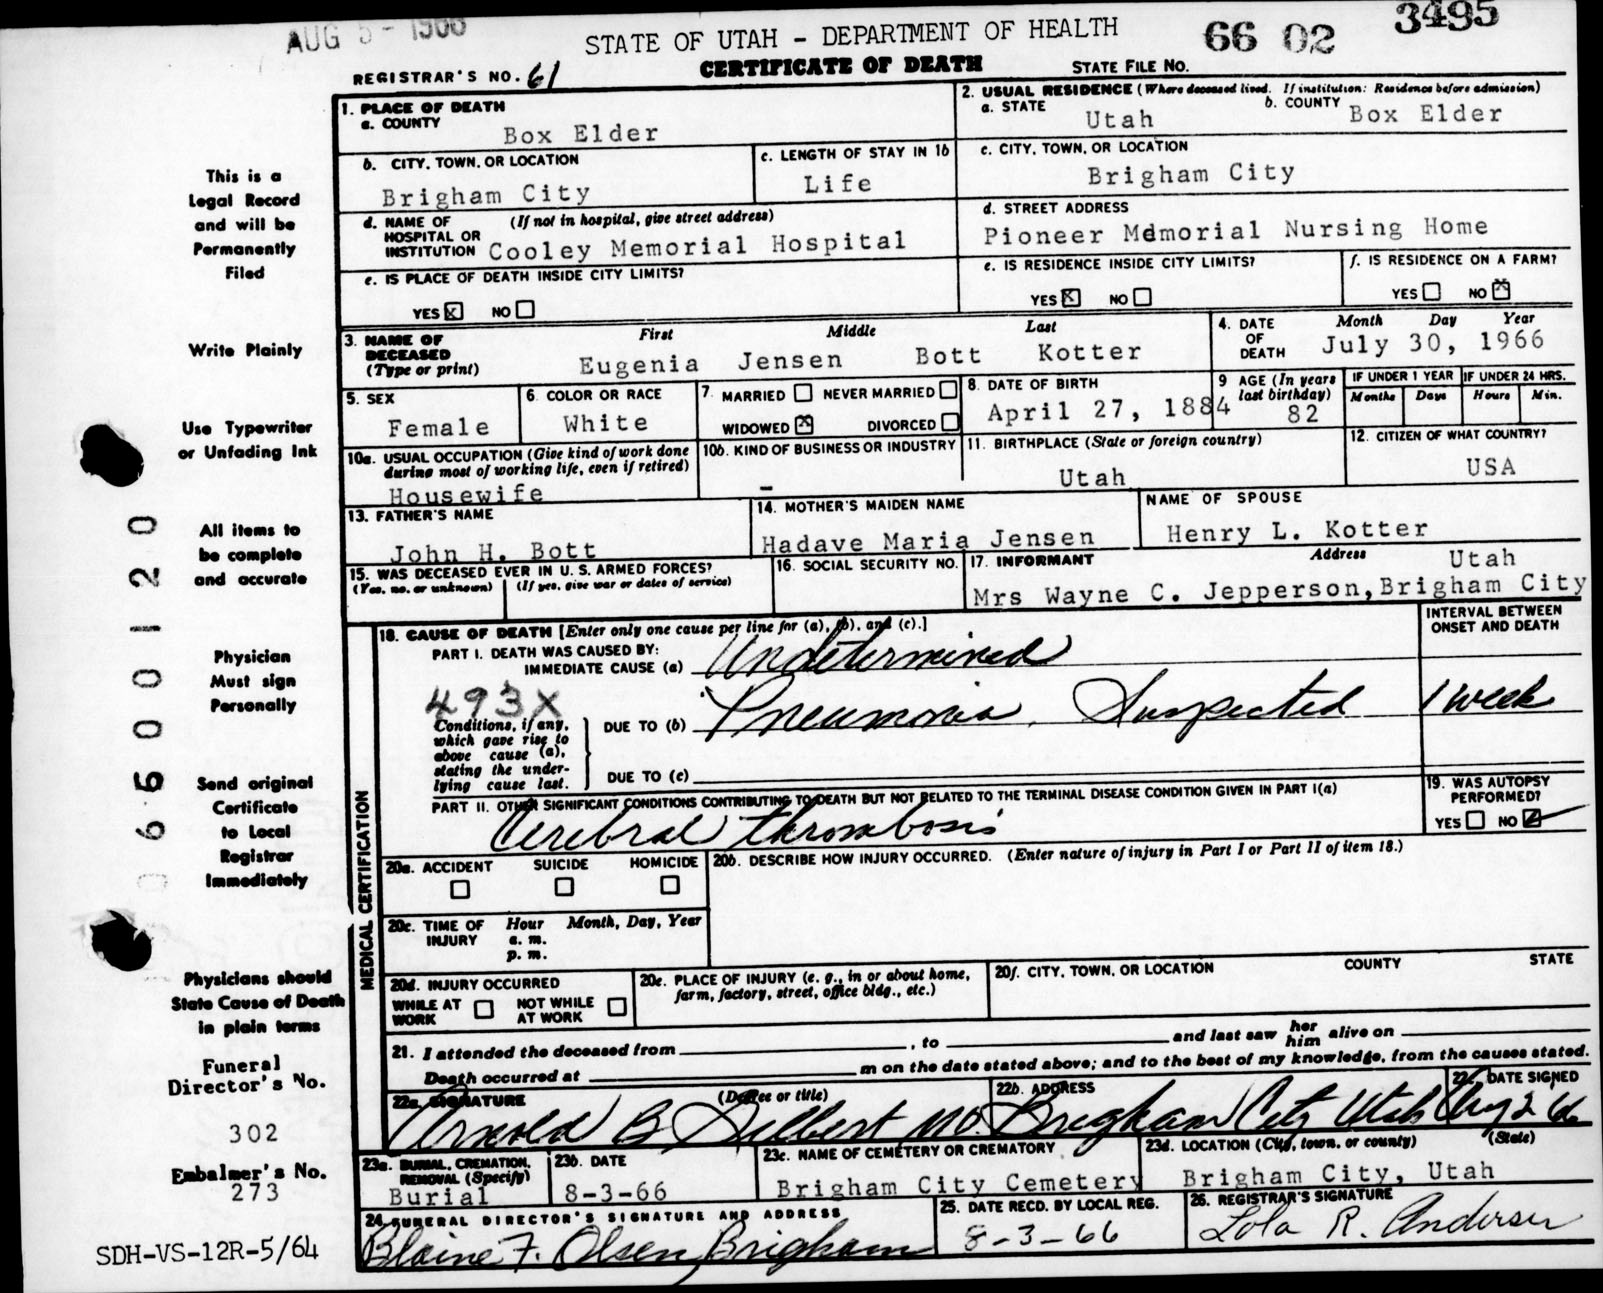 AUG 5 - 1966
STATE OF UTAH - DEPARTMENT OF HEALTH
66 02 3495
CERTIFICATE OF DEATH
REGISTRAR'S NO. 61
STATE FILE NO.
1. PLACE OF DEATH
a. COUNTY
Box Elder
2. USUAL RESIDENCE (Where deceased lived. If institution: Residence before admission)
a. STATE
Utah
b. COUNTY
Box Elder
b. CITY, TOWN, OR LOCATION
Brigham City
c. LENGTH OF STAY IN 1b
Life
c. CITY, TOWN, OR LOCATION
Brigham City
d. NAME OF HOSPITAL OR INSTITUTION (If not in hospital, give street address)
Cooley Memorial Hospital
d. STREET ADDRESS
Pioneer Memorial Nursing Home
e. IS PLACE OF DEATH INSIDE CITY LIMITS?
YES [X] NO [ ]
e. IS RESIDENCE INSIDE CITY LIMITS?
YES [X] NO [ ]
f. IS RESIDENCE ON A FARM?
YES [ ] NO [X]
3. NAME OF DECEASED (Type or print)
First Middle Last
Eugenia Jensen Bott Kotter
4. DATE OF DEATH
Month Day Year
July 30, 1966
5. SEX
Female
6. COLOR OR RACE
White
7. MARRIED [ ] NEVER MARRIED [ ]
WIDOWED [X] DIVORCED [ ]
8. DATE OF BIRTH
April 27, 1884
9 AGE (In years last birthday)
82
IF UNDER 1 YEAR
Months Days
IF UNDER 24 HRS.
Hours Min.
10a. USUAL OCCUPATION (Give kind of work done during most of working life, even if retired)
Housewife
10b. KIND OF BUSINESS OR INDUSTRY
-
11. BIRTHPLACE (State or foreign country)
Utah
12. CITIZEN OF WHAT COUNTRY?
USA
13. FATHER'S NAME
John H. Bott
14. MOTHER'S MAIDEN NAME
Hadave Maria Jensen
NAME OF SPOUSE
Henry L. Kotter
15. WAS DECEASED EVER IN U. S. ARMED FORCES?
(Yes, no, or unknown) (If yes, give war or dates of service)
16. SOCIAL SECURITY NO.
17. INFORMANT Address
Utah
Mrs Wayne C. Jepperson, Brigham City
MEDICAL CERTIFICATION
18. CAUSE OF DEATH [Enter only one cause per line for (a), (b), and (c).]
INTERVAL BETWEEN ONSET AND DEATH
PART I. DEATH WAS CAUSED BY:
IMMEDIATE CAUSE (a) Undetermined
493X
Conditions, if any, which gave rise to above cause (a), stating the underlying cause last.
DUE TO (b) Pneumonia, Suspected 1 week
DUE TO (c)
PART II. OTHER SIGNIFICANT CONDITIONS CONTRIBUTING TO DEATH BUT NOT RELATED TO THE TERMINAL DISEASE CONDITION GIVEN IN PART I(a)
Cerebral thrombosis
19. WAS AUTOPSY PERFORMED?
YES [ ] NO [✓]
20a. ACCIDENT SUICIDE HOMICIDE
20b. DESCRIBE HOW INJURY OCCURRED. (Enter nature of injury in Part I or Part II of item 18.)
20c. TIME OF INJURY Hour Month, Day, Year
a. m.
p. m.
20d. INJURY OCCURRED
WHILE AT WORK [ ] NOT WHILE AT WORK [ ]
20e. PLACE OF INJURY (e. g., in or about home, farm, factory, street, office bldg., etc.)
20f. CITY, TOWN, OR LOCATION COUNTY STATE
21. I attended the deceased from , to and last saw her him alive on
Death occurred at m on the date stated above; and to the best of my knowledge, from the causes stated.
22a. SIGNATURE (Degree or title)
Arnold B. Gilbert MD.
22b. ADDRESS
Brigham City Utah
22c. DATE SIGNED
Aug 2 '66
23a. BURIAL, CREMATION, REMOVAL (Specify)
Burial
23b. DATE
8-3-66
23c. NAME OF CEMETERY OR CREMATORY
Brigham City Cemetery
23d. LOCATION (City, town, or county) (State)
Brigham City, Utah
24. FUNERAL DIRECTOR'S SIGNATURE AND ADDRESS
Blaine F. Olsen, Brigham
25. DATE RECD. BY LOCAL REG.
8-3-66
26. REGISTRAR'S SIGNATURE
Lola R. Andersen
This is a
Legal Record
and will be
Permanently
Filed
Write Plainly
Use Typewriter
or Unfading Ink
All items to
be complete
and accurate
Physician
Must sign
Personally
Send original
Certificate
to Local
Registrar
Immediately
Physicians should
State Cause of Death
in plain terms
Funeral
Director's No.
302
Embalmer's No.
273
SDH-VS-12R-5/64
06600120